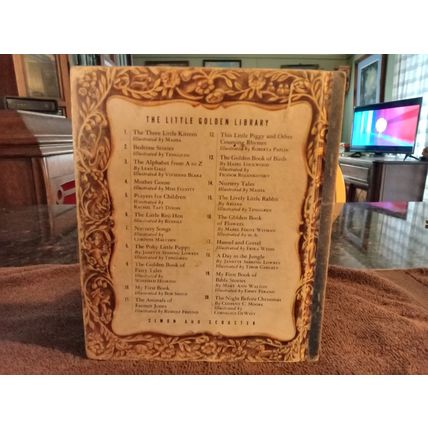 THE LITTLE GOLDEN LIBRARY
1. The Three Little Kittens
Illustrated by MASHA
2. Bedtime Stories
Illustrated by TENGGREN
3. The Alphabet From A to Z
By LEAH GALE
Illustrated by VIVIENNE BLAKE
4. Mother Goose
Illustrated by MISS ELLIOTT
5. Prayers for Children
Illustrated by
RACHEL TAFT DIXON
6. The Little Red Hen
Illustrated by RUDOLF
7. Nursery Songs
Illustrated by
CORINNE MALVERN
8. The Poky Little Puppy
By JANETTE SEBRING LOWREY
Illustrated by TENGGREN
9. The Golden Book of
Fairy Tales
Illustrated by
WINFIELD HOSKINS
10. My First Book
Illustrated by BOB SMITH
11. The Animals of
Farmer Jones
Illustrated by RUDOLF FREUND
12. This Little Piggy and Other
Counting Rhymes
Illustrated by ROBERTA PAFLIN
13. The Golden Book of Birds
By HAZEL LOCKWOOD
Illustrated by
FEODOR ROJANKOVSKY
14. Nursery Tales
Illustrated by MASHA
15. The Lively Little Rabbit
By ARIANE
Illustrated by TENGGREN
16. The Golden Book
of Flowers
By MABEL FOOTE WITMAN
Illustrated by
17. Hansel and Gretel
Illustrated by ERIKA WEIHS
18. A Day in the Jungle
By JANETTE SEBRING LOWREY
Illustrated by TIBOR GERGELY
19. My First Book of
Bible Stories
By MARY ANN WALTON
Illustrated by EMMY FERAND
20. The Night Before Christmas
By CLEMENT C. MOORE
Illustrated by
CORNELIUS DEWITT
SIMON AND SCHUSTER